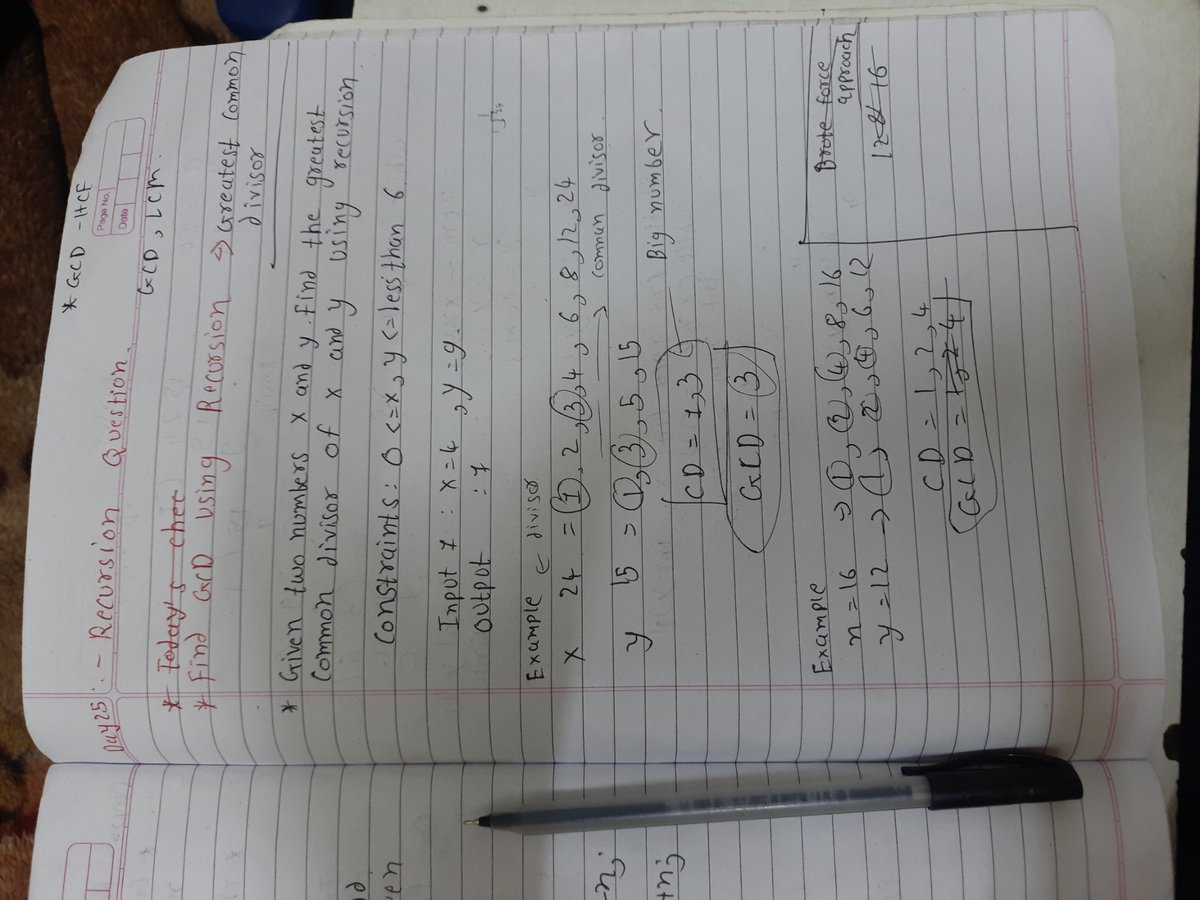 * GCD - HCF
Page No.
Date
Day 25 :- Recursion Question.
GCD, LCM.
* Today's chee
* Find GCD using Recursion => Greatest Common
divisor
* Given two numbers x and y. Find the greatest
Common divisor of x and y using recursion
Constraints : 0 <= x, y <= less than 6
Input 1 : x = 4, y = 9.
Output : 1
Example divisor
x 24 = 1, 2, 3, 4, 6, 8, 12, 24
common divisor
y 15 = 1, 3, 5, 15
CD = 1, 3 Big number
GCD = 3
Example
n = 16 -> 1, 2, 4, 8, 16
y = 12 -> 1, 2, 4, 6, 12
CD = 1, 2, 4
GCD = 4
Brote force
approach
16
ven
-n;
+n;